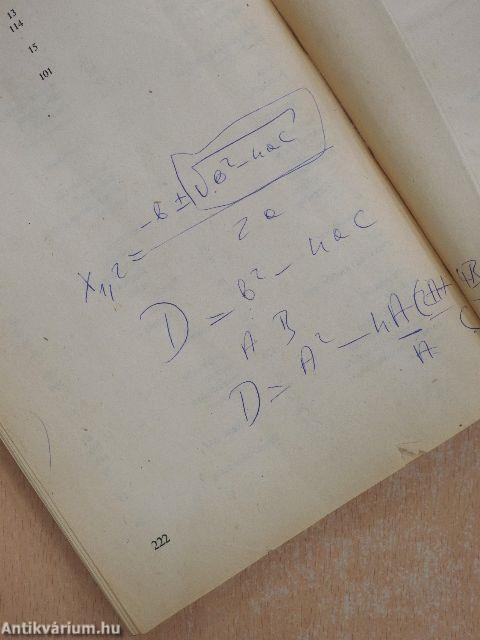 13
114
15
101
X₁,₂ = -b ± √b² - 4ac
2a
D = b² - 4ac
A B
D = A² - 4A(2A+4B
A
222
Antikvárium.hu